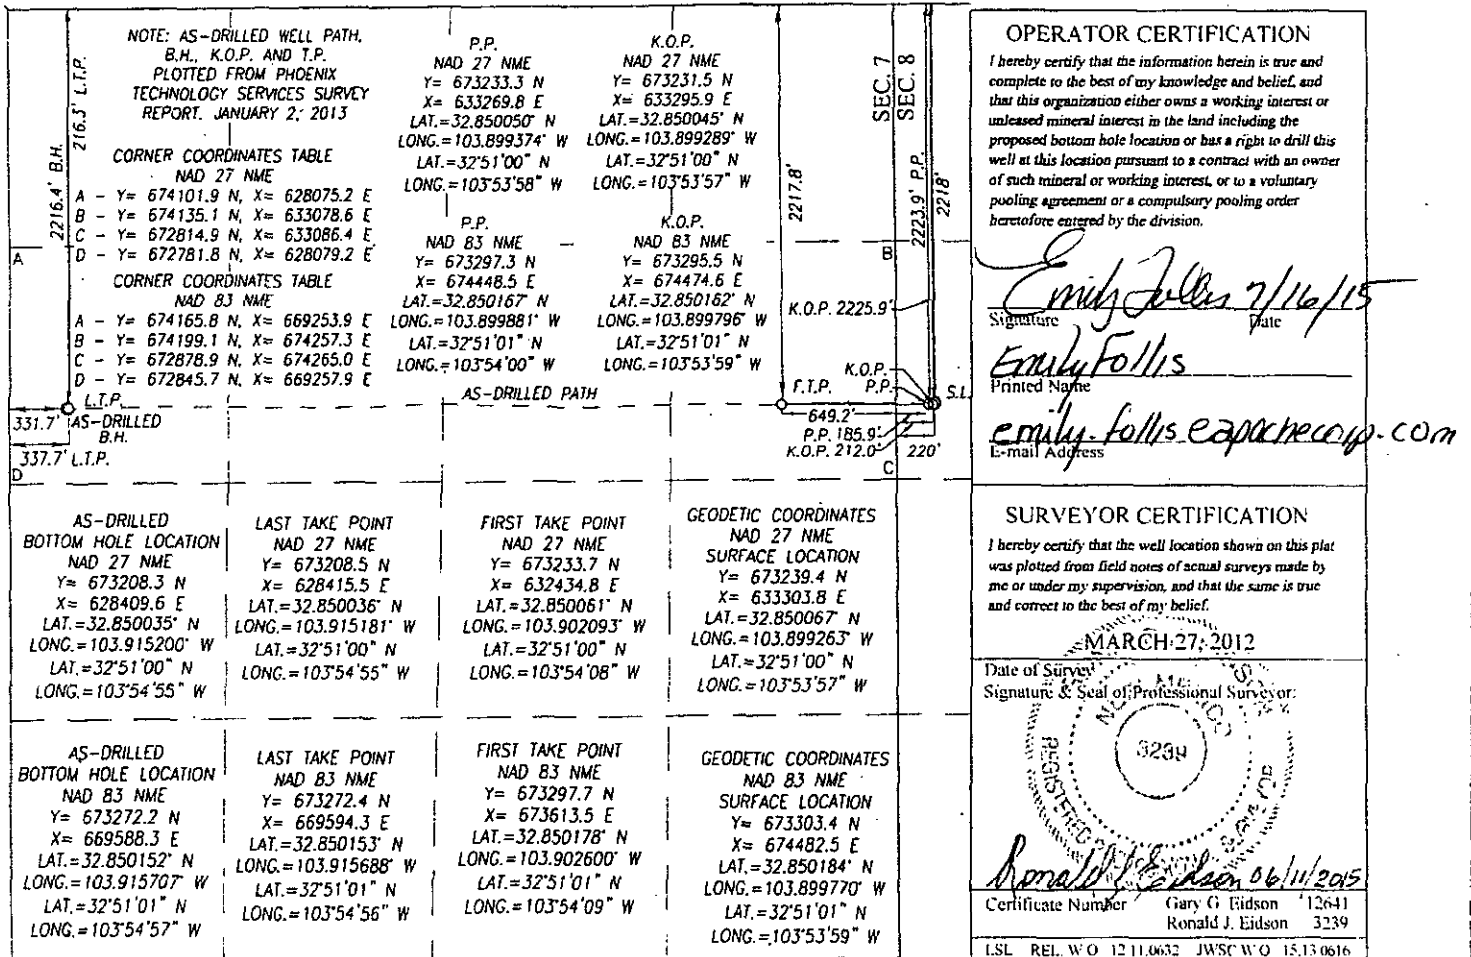 NOTE: AS-DRILLED WELL PATH,
B.H., K.O.P. AND T.P.
PLOTTED FROM PHOENIX
TECHNOLOGY SERVICES SURVEY
REPORT. JANUARY 2, 2013
216.3' L.T.P.
2216.4' B.H.
CORNER COORDINATES TABLE
NAD 27 NME
A - Y= 674101.9 N, X= 628075.2 E
B - Y= 674135.1 N, X= 633078.6 E
C - Y= 672814.9 N, X= 633086.4 E
D - Y= 672781.8 N, X= 628079.2 E
CORNER COORDINATES TABLE
NAD 83 NME
A - Y= 674165.8 N, X= 669253.9 E
B - Y= 674199.1 N, X= 674257.3 E
C - Y= 672878.9 N, X= 674265.0 E
D - Y= 672845.7 N, X= 669257.9 E
P.P.
NAD 27 NME
Y= 673233.3 N
X= 633269.8 E
LAT.=32.850050° N
LONG.=103.899374° W
LAT.=32°51'00" N
LONG.=103°53'58" W
K.O.P.
NAD 27 NME
Y= 673231.5 N
X= 633295.9 E
LAT.=32.850045° N
LONG.=103.899289° W
LAT.=32°51'00" N
LONG.=103°53'57" W
P.P.
NAD 83 NME
Y= 673297.3 N
X= 674448.5 E
LAT.=32.850167° N
LONG.=103.899881° W
LAT.=32°51'01" N
LONG.=103°54'00" W
K.O.P.
NAD 83 NME
Y= 673295.5 N
X= 674474.6 E
LAT.=32.850162° N
LONG.=103.899796° W
LAT.=32°51'01" N
LONG.=103°53'59" W
2217.8'
SEC. 7
SEC. 8
2223.9' P.P.
2218'
A
B
K.O.P. 2225.9'
K.O.P.
F.T.P. P.P. S.L.
AS-DRILLED PATH
L.T.P.
331.7' AS-DRILLED
B.H.
337.7' L.T.P.
649.2'
P.P. 185.9'
K.O.P. 212.0' 220'
D
C
AS-DRILLED
BOTTOM HOLE LOCATION
NAD 27 NME
Y= 673208.3 N
X= 628409.6 E
LAT.=32.850035° N
LONG.=103.915200° W
LAT.=32°51'00" N
LONG.=103°54'55" W
LAST TAKE POINT
NAD 27 NME
Y= 673208.5 N
X= 628415.5 E
LAT.=32.850036° N
LONG.=103.915181° W
LAT.=32°51'00" N
LONG.=103°54'55" W
FIRST TAKE POINT
NAD 27 NME
Y= 673233.7 N
X= 632434.8 E
LAT.=32.850061° N
LONG.=103.902093° W
LAT.=32°51'00" N
LONG.=103°54'08" W
GEODETIC COORDINATES
NAD 27 NME
SURFACE LOCATION
Y= 673239.4 N
X= 633303.8 E
LAT.=32.850067° N
LONG.=103.899263° W
LAT.=32°51'00" N
LONG.=103°53'57" W
AS-DRILLED
BOTTOM HOLE LOCATION
NAD 83 NME
Y= 673272.2 N
X= 669588.3 E
LAT.=32.850152° N
LONG.=103.915707° W
LAT.=32°51'01" N
LONG.=103°54'57" W
LAST TAKE POINT
NAD 83 NME
Y= 673272.4 N
X= 669594.3 E
LAT.=32.850153° N
LONG.=103.915688° W
LAT.=32°51'01" N
LONG.=103°54'56" W
FIRST TAKE POINT
NAD 83 NME
Y= 673297.7 N
X= 673613.5 E
LAT.=32.850178° N
LONG.=103.902600° W
LAT.=32°51'01" N
LONG.=103°54'09" W
GEODETIC COORDINATES
NAD 83 NME
SURFACE LOCATION
Y= 673303.4 N
X= 674482.5 E
LAT.=32.850184° N
LONG.=103.899770° W
LAT.=32°51'01" N
LONG.=103°53'59" W
OPERATOR CERTIFICATION
I hereby certify that the information herein is true and
complete to the best of my knowledge and belief, and
that this organization either owns a working interest or
unleased mineral interest in the land including the
proposed bottom hole location or has a right to drill this
well at this location pursuant to a contract with an owner
of such mineral or working interest, or to a voluntary
pooling agreement or a compulsory pooling order
heretofore entered by the division.
Emily Follis 7/16/15
Signature Date
Emily Follis
Printed Name
emily.follis@apachecorp.com
E-mail Address
SURVEYOR CERTIFICATION
I hereby certify that the well location shown on this plat
was plotted from field notes of actual surveys made by
me or under my supervision, and that the same is true
and correct to the best of my belief.
MARCH 27, 2012
Date of Survey
Signature & Seal of Professional Surveyor:
NEW MEXICO
3239
REGISTERED
SURVEYOR
Ronald J Eidson 06/11/2015
Certificate Number Gary G. Eidson 12641
Ronald J. Eidson 3239
LSL REL. W.O. 12.11.0632 JWSC W.O. 15.13.0616